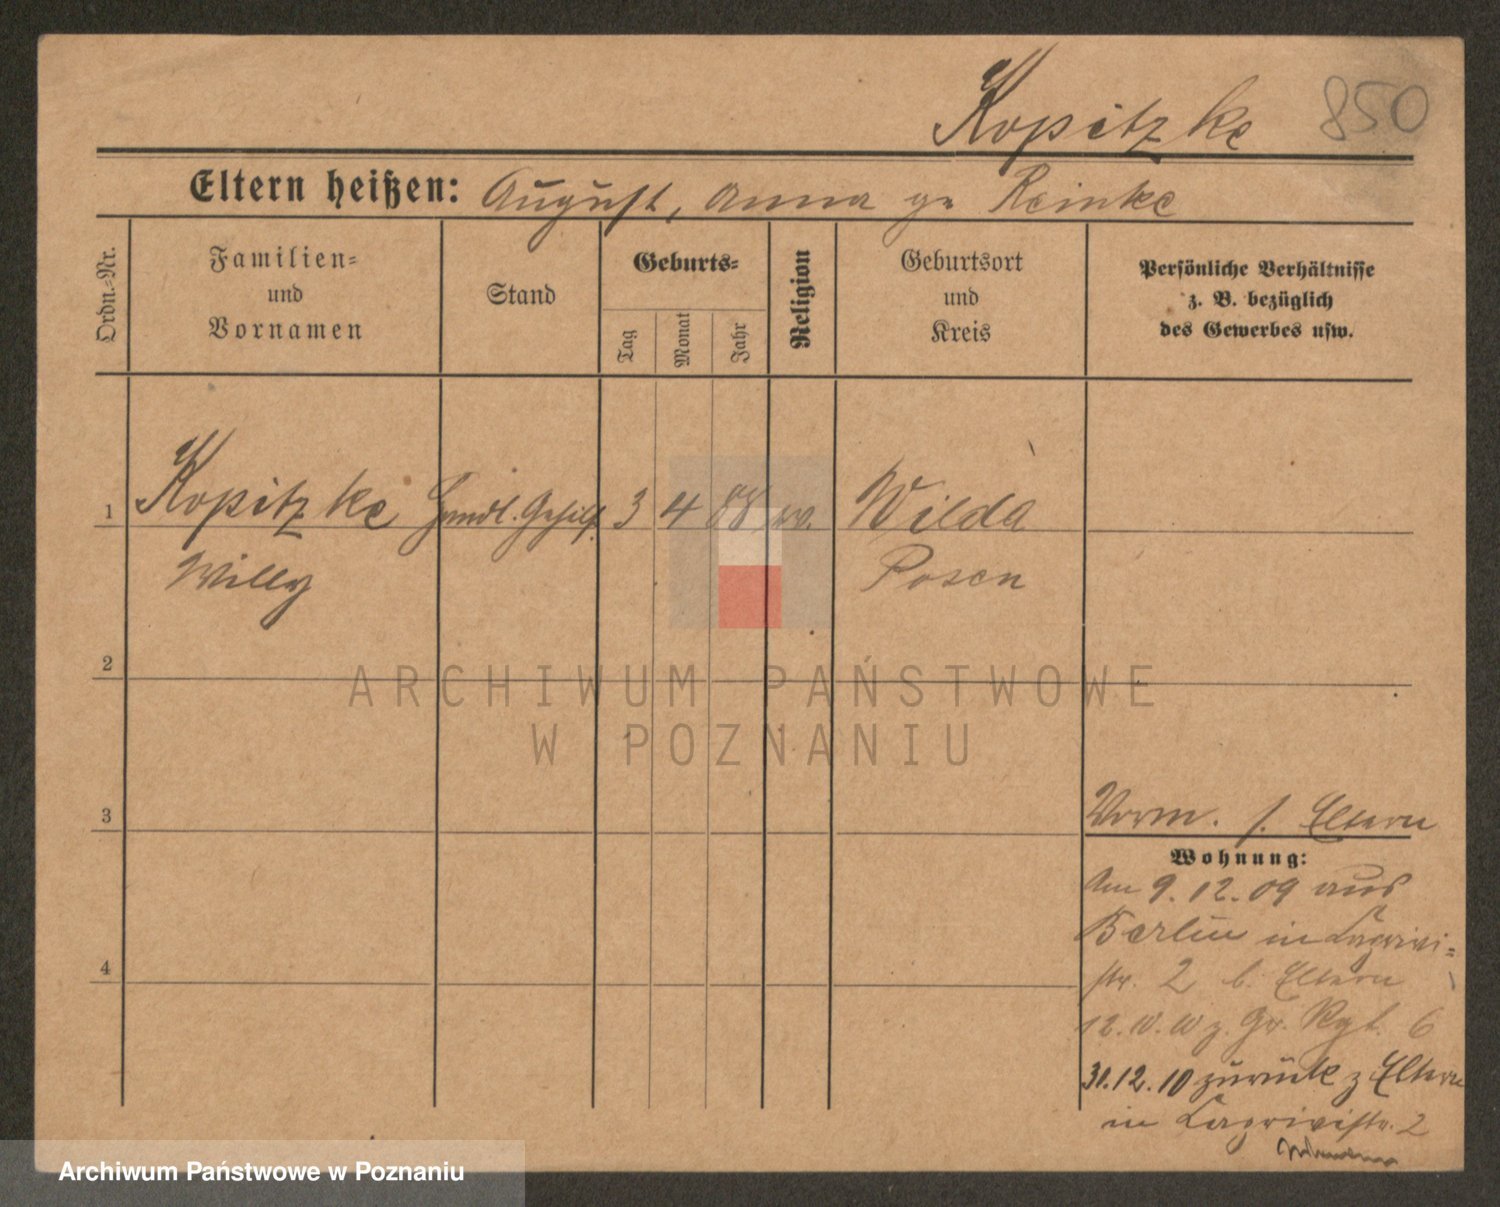 Kopitzke 850
Eltern heißen: August, Anna ge Reinke
Ordn.-Nr.
Familien-
und
Vornamen
Stand
Geburts-
Tag
Monat
Jahr
Religion
Geburtsort
und
Kreis
Persönliche Verhältnisse
z. B. bezüglich
des Gewerbes usw.
1 Kopitzke Handl. Gehilf. 3 4 88 ev. Wilda
Willy Posen
2
ARCHIWUM PAŃSTWOWE
W POZNANIU
3
Vorm. s. Eltern
Wohnung:
Am 9.12.09 aus
Berlin in
4
str. 2 b. Eltern
z. Gr. Rgt. 6
31.12.10 zurück z Eltern
in 2
Archiwum Państwowe w Poznaniu